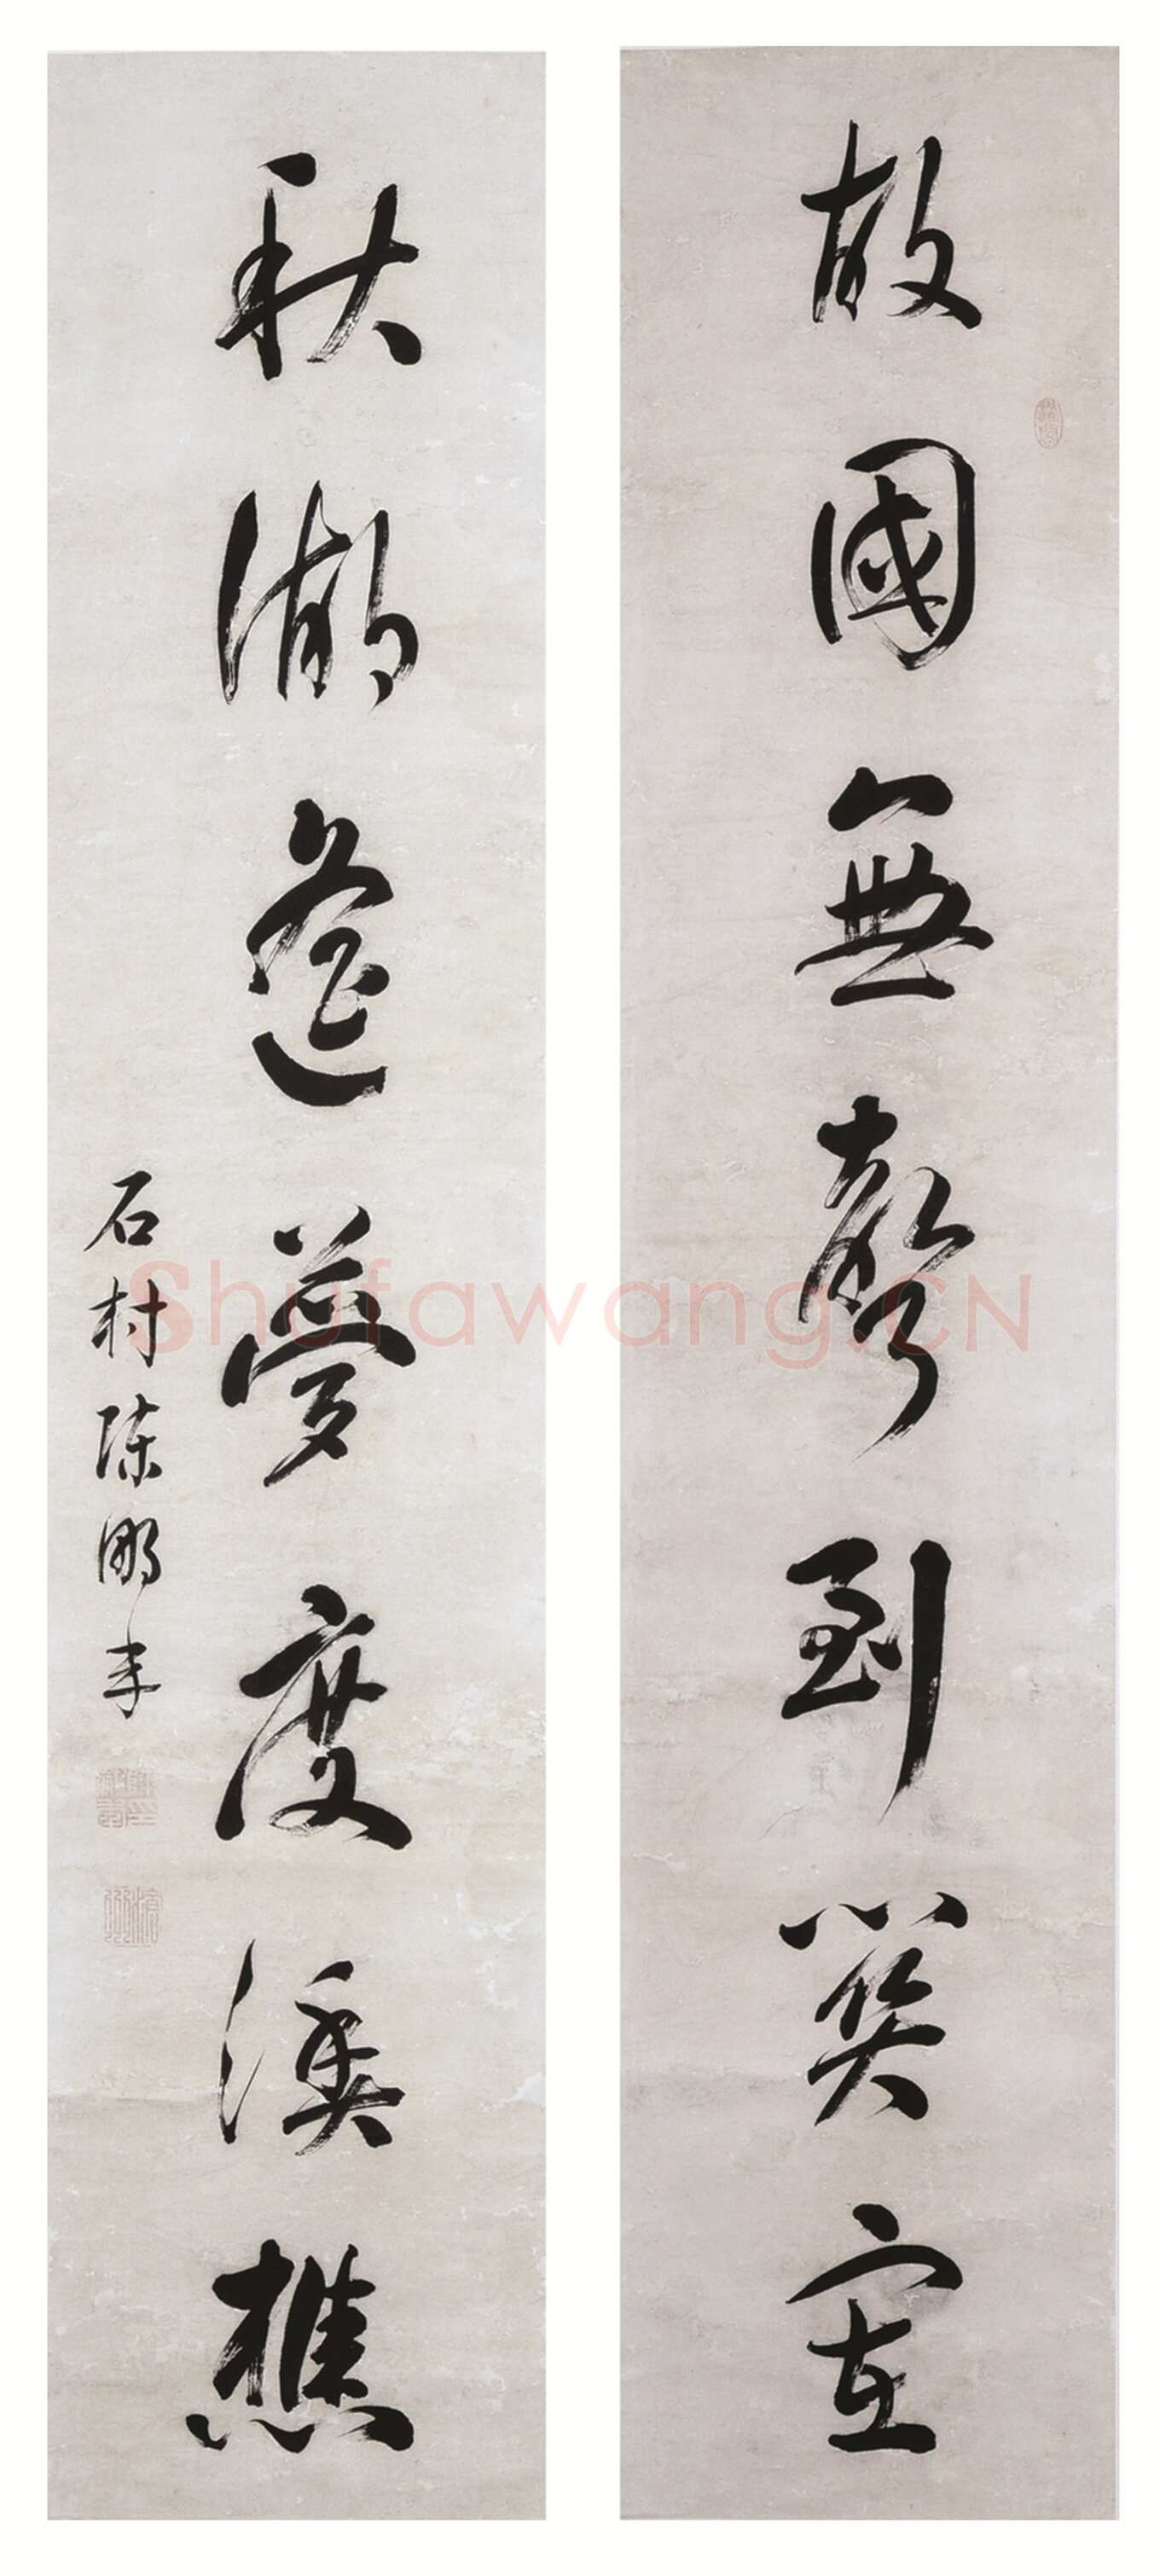 故國無聲到笑
秋湖遙夢度溪樵
石村陳鵬年
Shufawang.CN